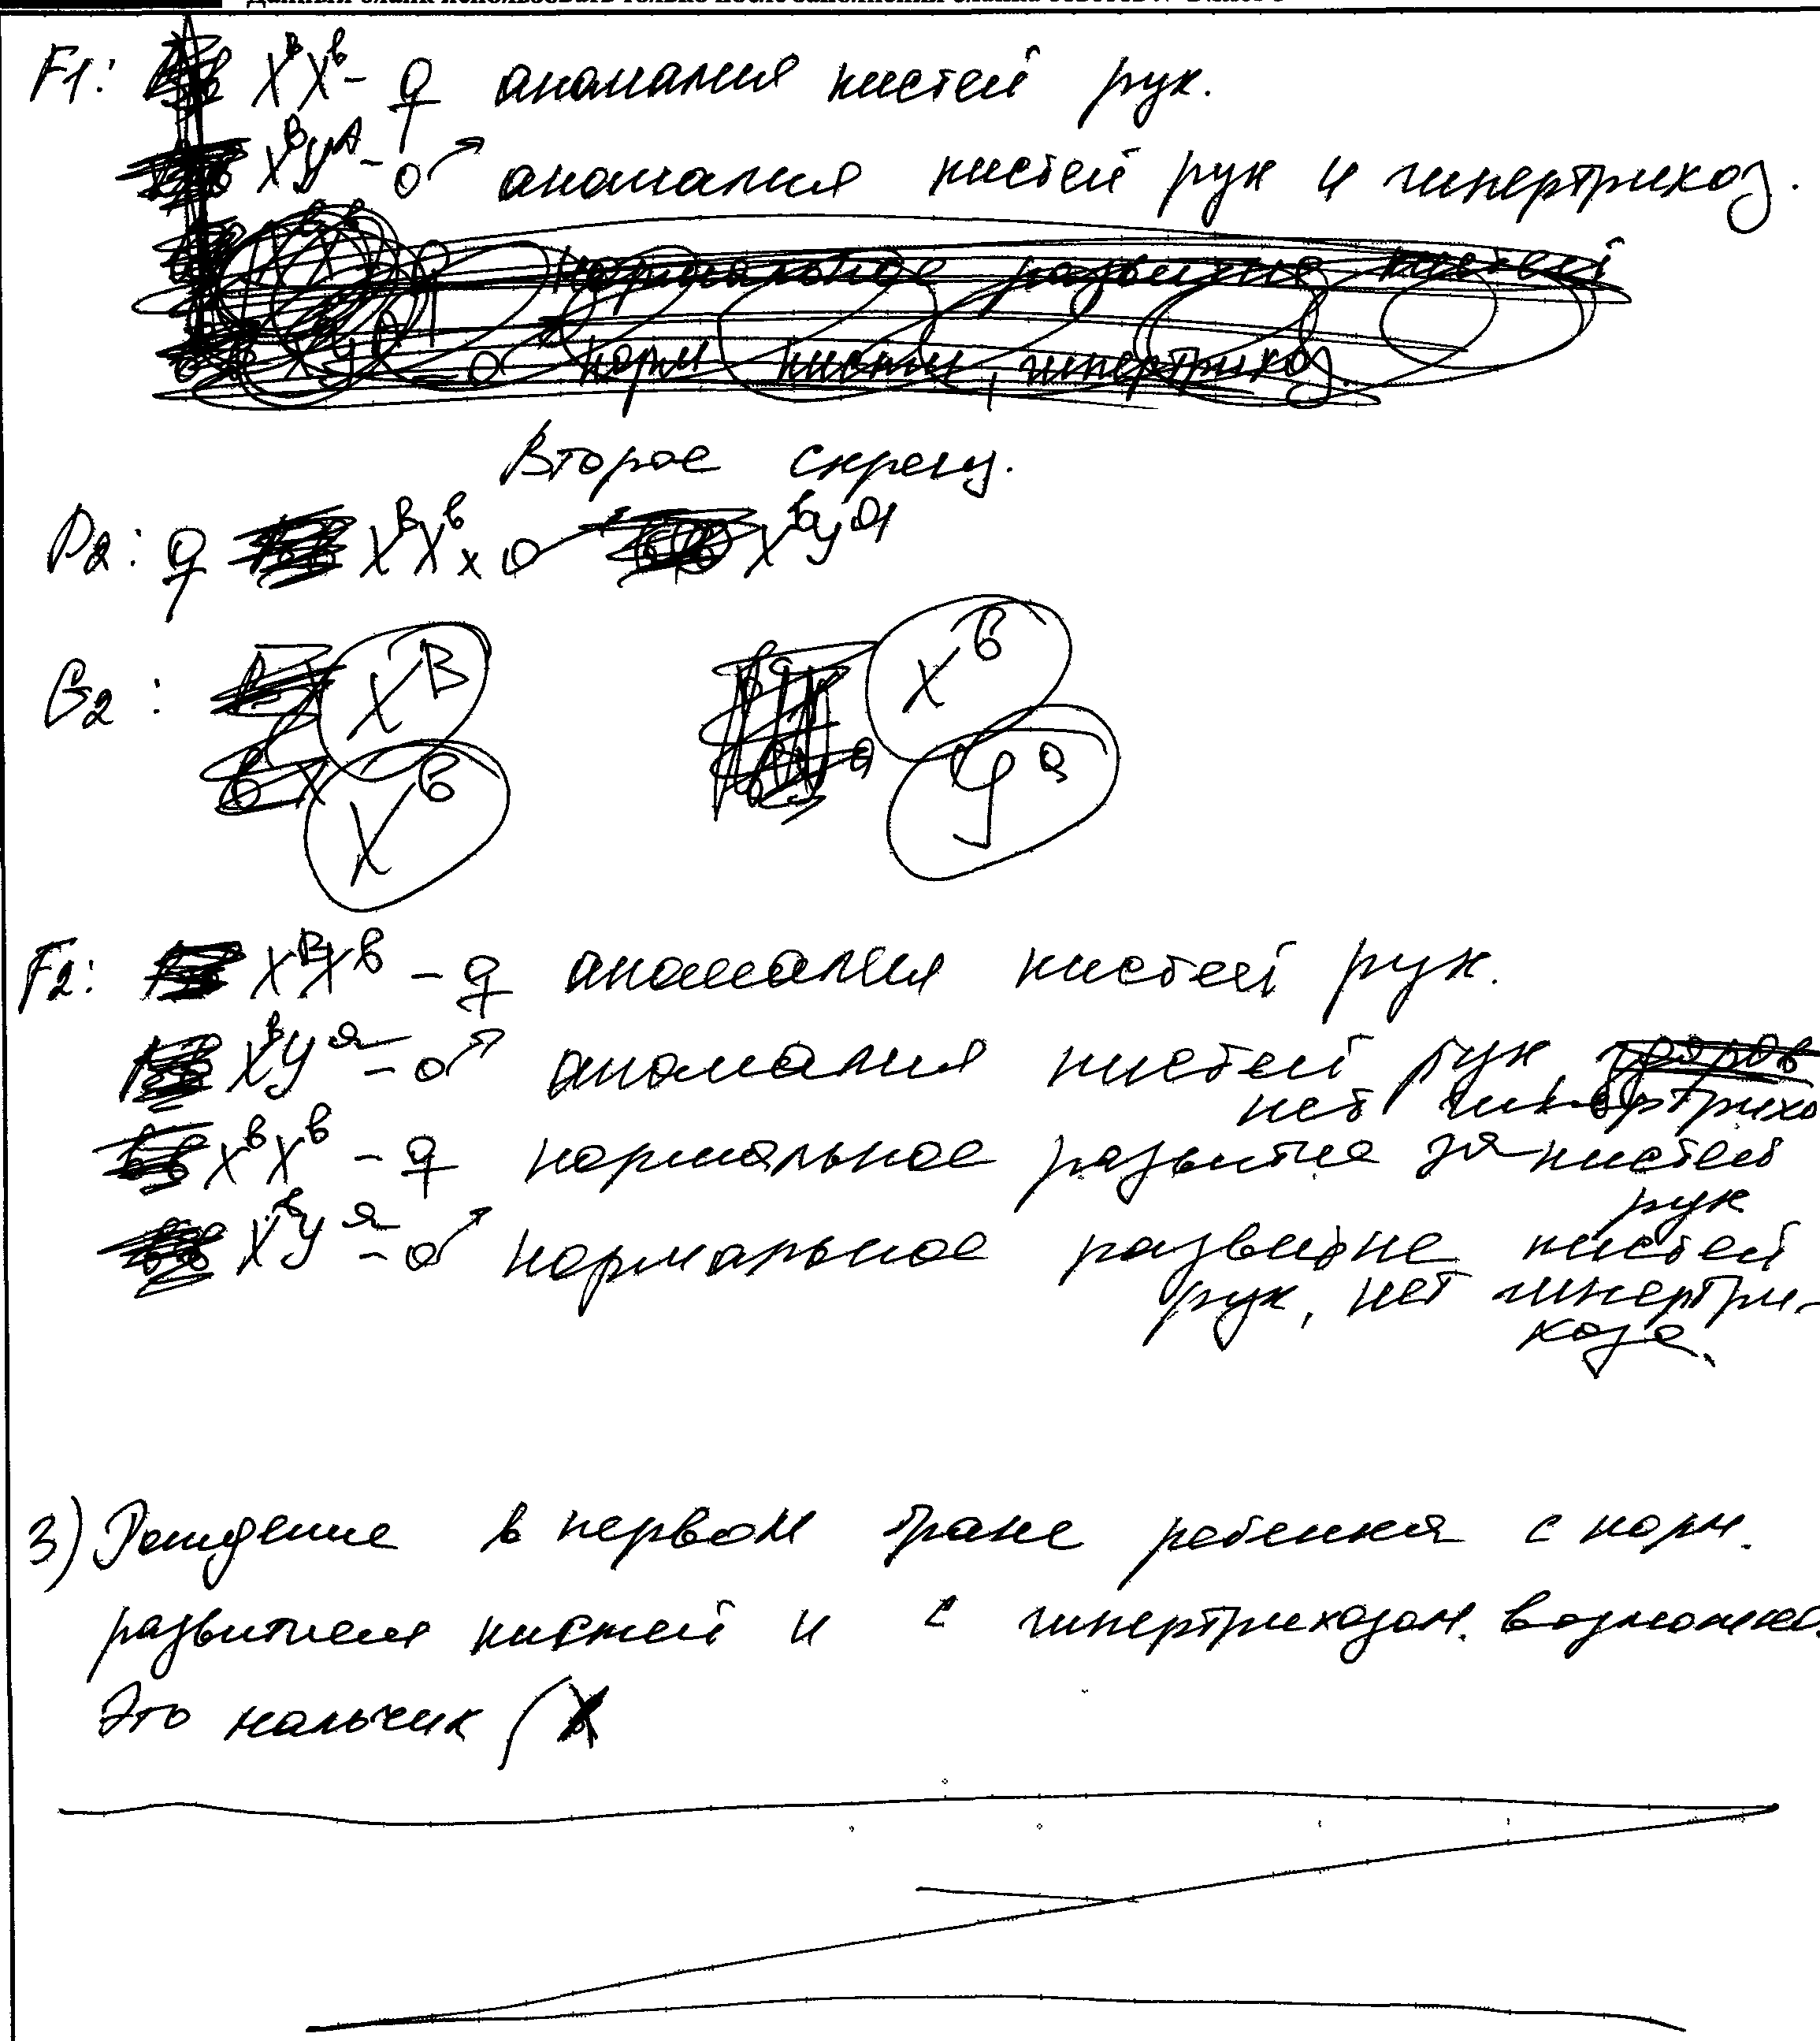 F1: XᴮXᵇ - ♀ аномалия кистей рук.
XᴮYᴬ - ♂ аномалия кистей рук и гипертрихоз.
нормальное развитие кистей
норм кисти, гипертрихоз.
Второе скрещ.
P2: ♀ XᴮXᵇ x ♂ XᵇYᵃ
G2: Xᴮ Xᵇ
Xᵇ Yᵃ
F2: XᴮXᵇ - ♀ аномалия кистей рук.
XᴮYᵃ - ♂ аномалия кистей рук здоров
нет гипертрихо
XᵇXᵇ - ♀ нормальное развитие кистей
рук
XᵇYᵃ - ♂ нормальное развитие кистей
рук, нет гипертри-
хоза.
3) Рождение в первом браке ребенка с норм.
развитием кистей и с гипертрихозом. возможно.
Это мальчик (X